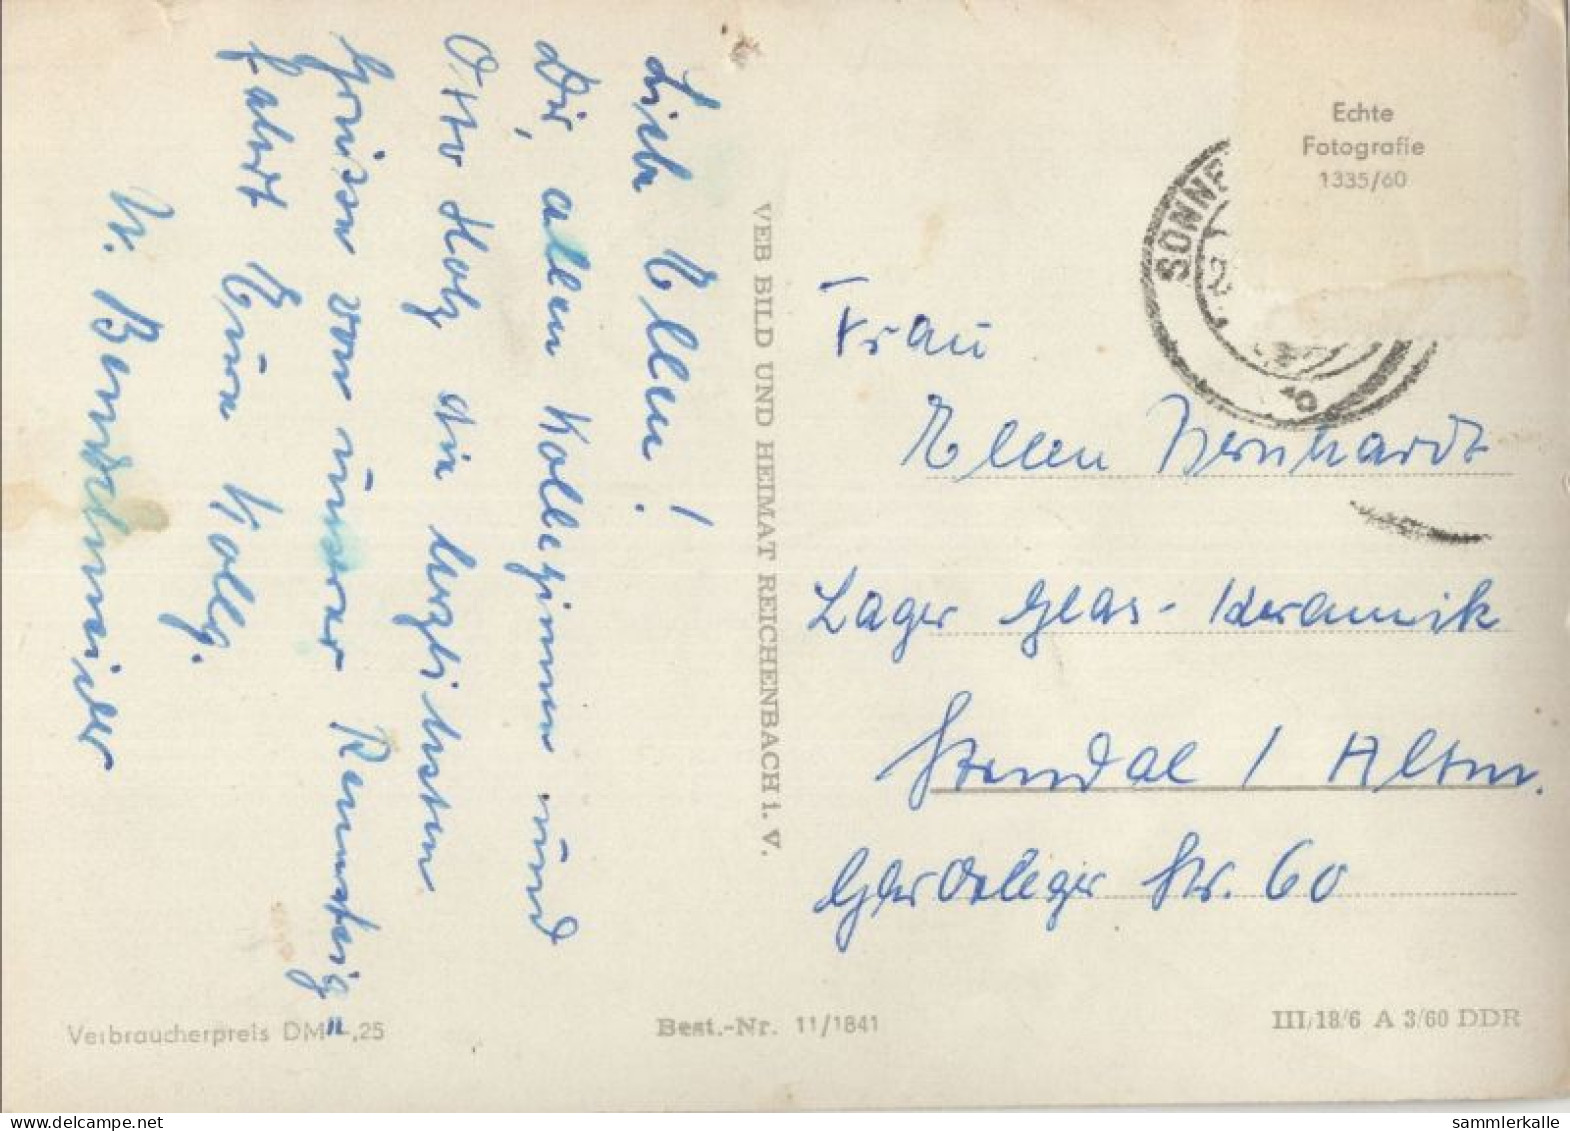 Liebe Ellen!
Dir, allen Kolleginnen und
Otto Holz die herzlichsten
Grüsse von unserer Rennsteig=
fahrt Eure Kollg.
U. Bendelmeier
VEB BILD UND HEIMAT REICHENBACH i. V.
Echte
Fotografie
1335/60
SONNE
Frau
Ellen Bernhardt
Lager Glas-Keramik
Stendal / Altm.
Gardeleger Str. 60
Verbraucherpreis DM -,25
Best.-Nr. 11/1841
III/18/6 A 3/60 DDR
www.delcampe.net
sammlerkalle